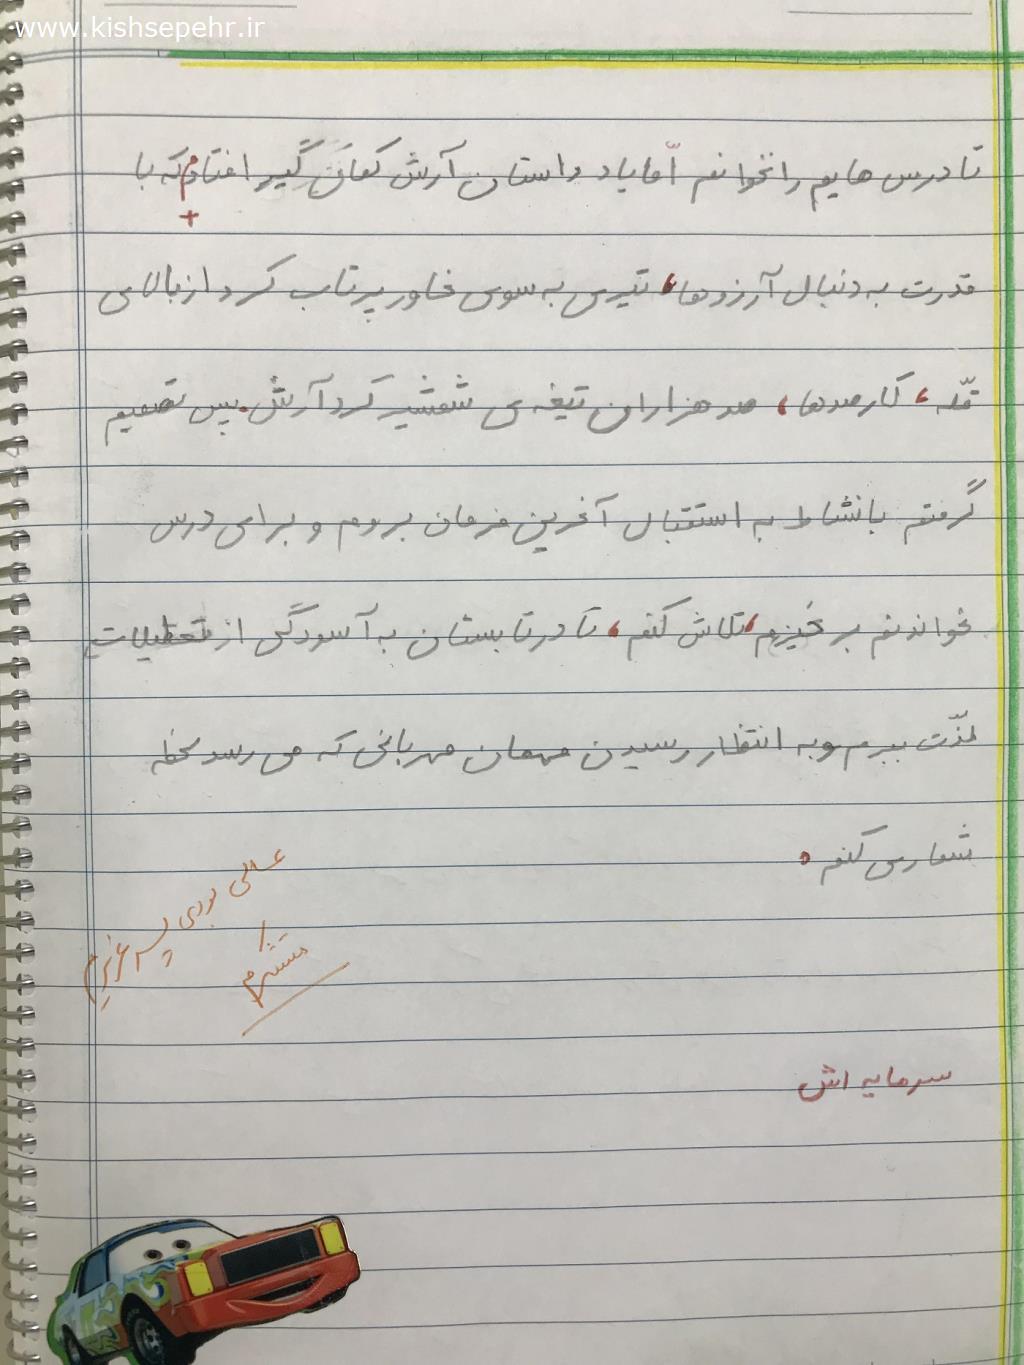 www.kishsepehr.ir
تا درس هایم را نخوانم امّا یاد داستان آرش کمان گیر افتادم که با
+
قدرت به دنبال آرزوها، تیری به سوی خاور پرتاب کرد از بالای
قلّه، کارصدها، صد هزاران تیغه ی شمشیر کرد آرش. پس تصمیم
گرفتم بانشاط به استقبال آخرین فرمان بروم و برای درس
خواندنم برخیزم، تلاش کنم، تا در تابستان به آسودگی از تعطیلات
لذّت ببرم وبه انتظار رسیدن مهمان مهربانی که می رسد لحظه
شماری کنم.
عالی بودی پسر عزیزم
متشکرم
سرمایه اش